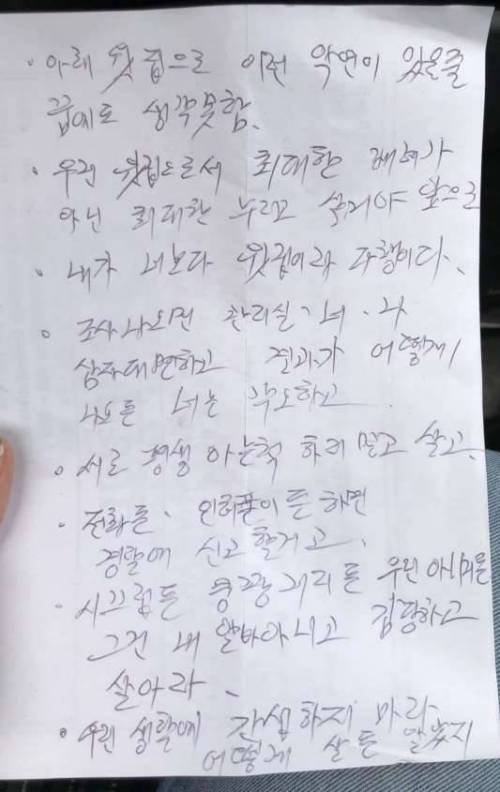 · 아래 윗 집으로 이런 악연이 있을줄
꿈에도 생각못함.
· 우린 윗집으로서 최대한 배려가
아닌 최대한 누리고 살거야 앞으로
· 내가 너보다 윗집이라 다행이다.
· 조사나오면 관리실·너·나
삼자대면하고 결과가 어떻게
나오든 너는 각오하고
· 서로 평생 아는척 하지 말고 살고.
· 전화든·인터폰이든 하면
경찰에 신고할거고.
· 시끄럽든 쿵쾅거리든 우린 아니이를
그건 내 알바아니고 감당하고
살아라.
· 우린 생활에 간섭하지 마라.
어떻게 살든 알았지